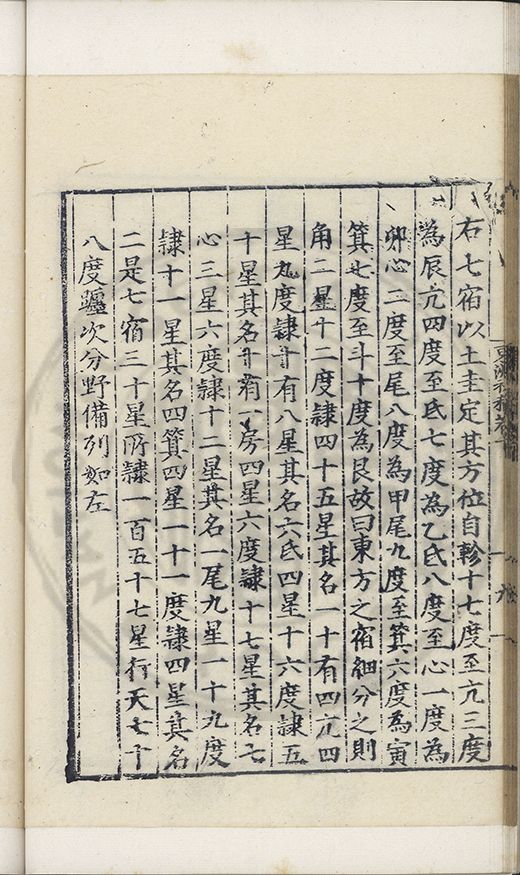 右七宿以土圭定其方位自軫十七度至亢三度
為辰亢四度至氐七度為乙氐八度至心一度為
卯心二度至尾八度為甲尾九度至箕六度為寅
箕七度至斗十度為艮故曰東方之宿細分之則
角二星十二度隷四十五星其名一十有四亢四
星九度隷十有八星其名六氐四星十六度隷五
十星其名十有一房四星六度隷十七星其名七
心三星六度隷十二星其名一尾九星一十九度
隷十一星其名四箕四星一十一度隷四星其名
二是七宿三十星所隷一百五十七星行天七十
八度躔次分野備列如左